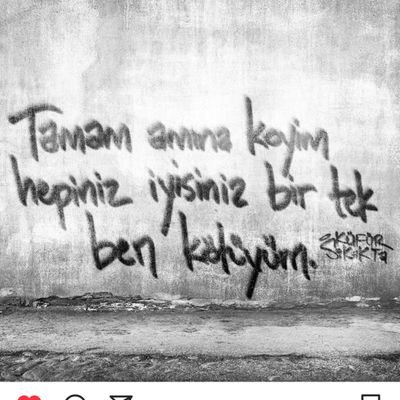 Tamam amına koyim
hepiniz iyisiniz bir tek
ben kötüyüm.
KÜFÜR
SOKAKTA